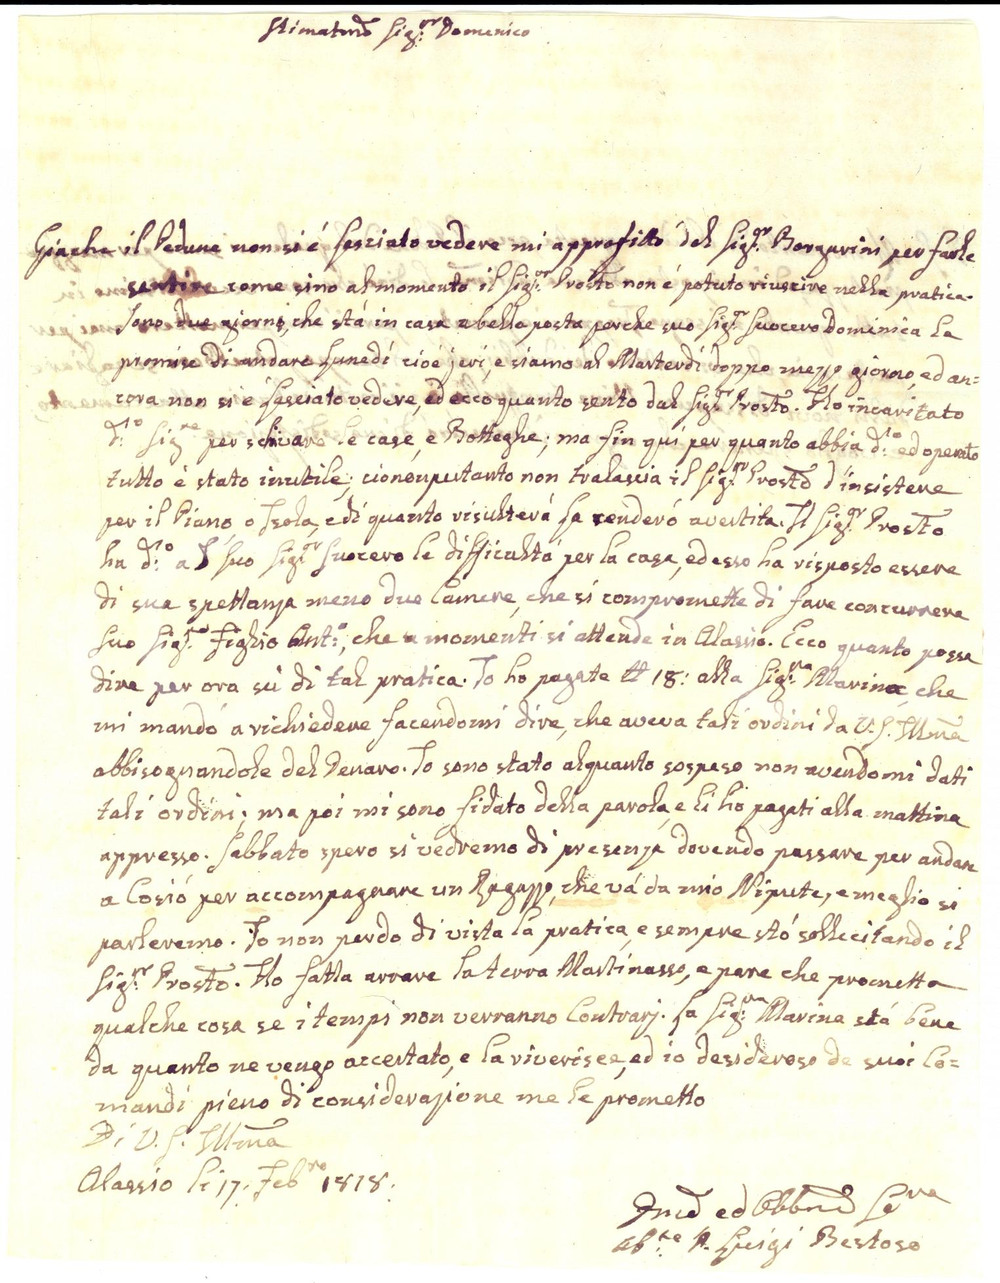 Stimatmo Sig.r Domenico
Giache il Pedone non si è lasciato vedere mi approfitto del Sig.r Borgarini per farle
sentire come sino al momento il Sig.r Prosto non è potuto riuscire nella pratica.
Sono due giorni, che stá in casa a bella posta perche suo Sig.r Suocero Dominica la
promise di andare Lunedí cioè jeri, e siamo al Marterdí doppo mezzo giorno, ed an=
cora non si è lasciato vedere, ed ecco quanto sento dal Sig.r Prosto. Ho incaritato
d.to Sig.re per schivare le case, e Botteghe; ma fin qui per quanto abbia d.to ed operato
tutto è stato inutile; ciononputanto non tralascia il Sig.r Prosto d'insistere
per il Piano o Isola, e di quanto risulterá la renderó avertita. Il Sig.r Prosto
ha d.to a suo Sig.r Suocero le difficultá per la casa, ed esso ha risposto essere
di sua spettanza meno due Camere, che si compromette di fare concurrere
suo Sig.re Figlio Ant.o, che a momenti si attende in Alassio. Ecco quanto possa
dire per ora sú di tal pratica. Io ho pagate ₶ 18: alla Sig.ra Marina, che
mi mandó a richiedere facendomi dire, che aveva tali ordini da V. S. Illma
abbisognandole del Denaro. Io sono stato alquanto sospeso non avendomi dati
tali ordini; ma poi mi sono fidato della parola, e li hó pagati alla mattina
appresso. Sabbato spero si vedremo di presenza dovendo passare per andare
a Cosió per accompagnare un Ragazzo, che vá da mio Nipute, e meglio si
parleremo. Io non perdo di vista la pratica, e sempre stó sollecitando il
Sig.r Prosto. Ho fatta arrare la terra Martinasso, e pare che prometta
qualche cosa se i tempi non verranno Contrarj. La Sig.ra Marina stá bene
da quanto ne vengo accertato, e la riverisce, ed io desideroso de suoi Co=
mandi pieno di considerazione me le prometto
Di V. S. Illma
Alassio li 17. Feb.ro 1818.
ed Obbmo Se.re
Ab.te P. Luigi Bestoso